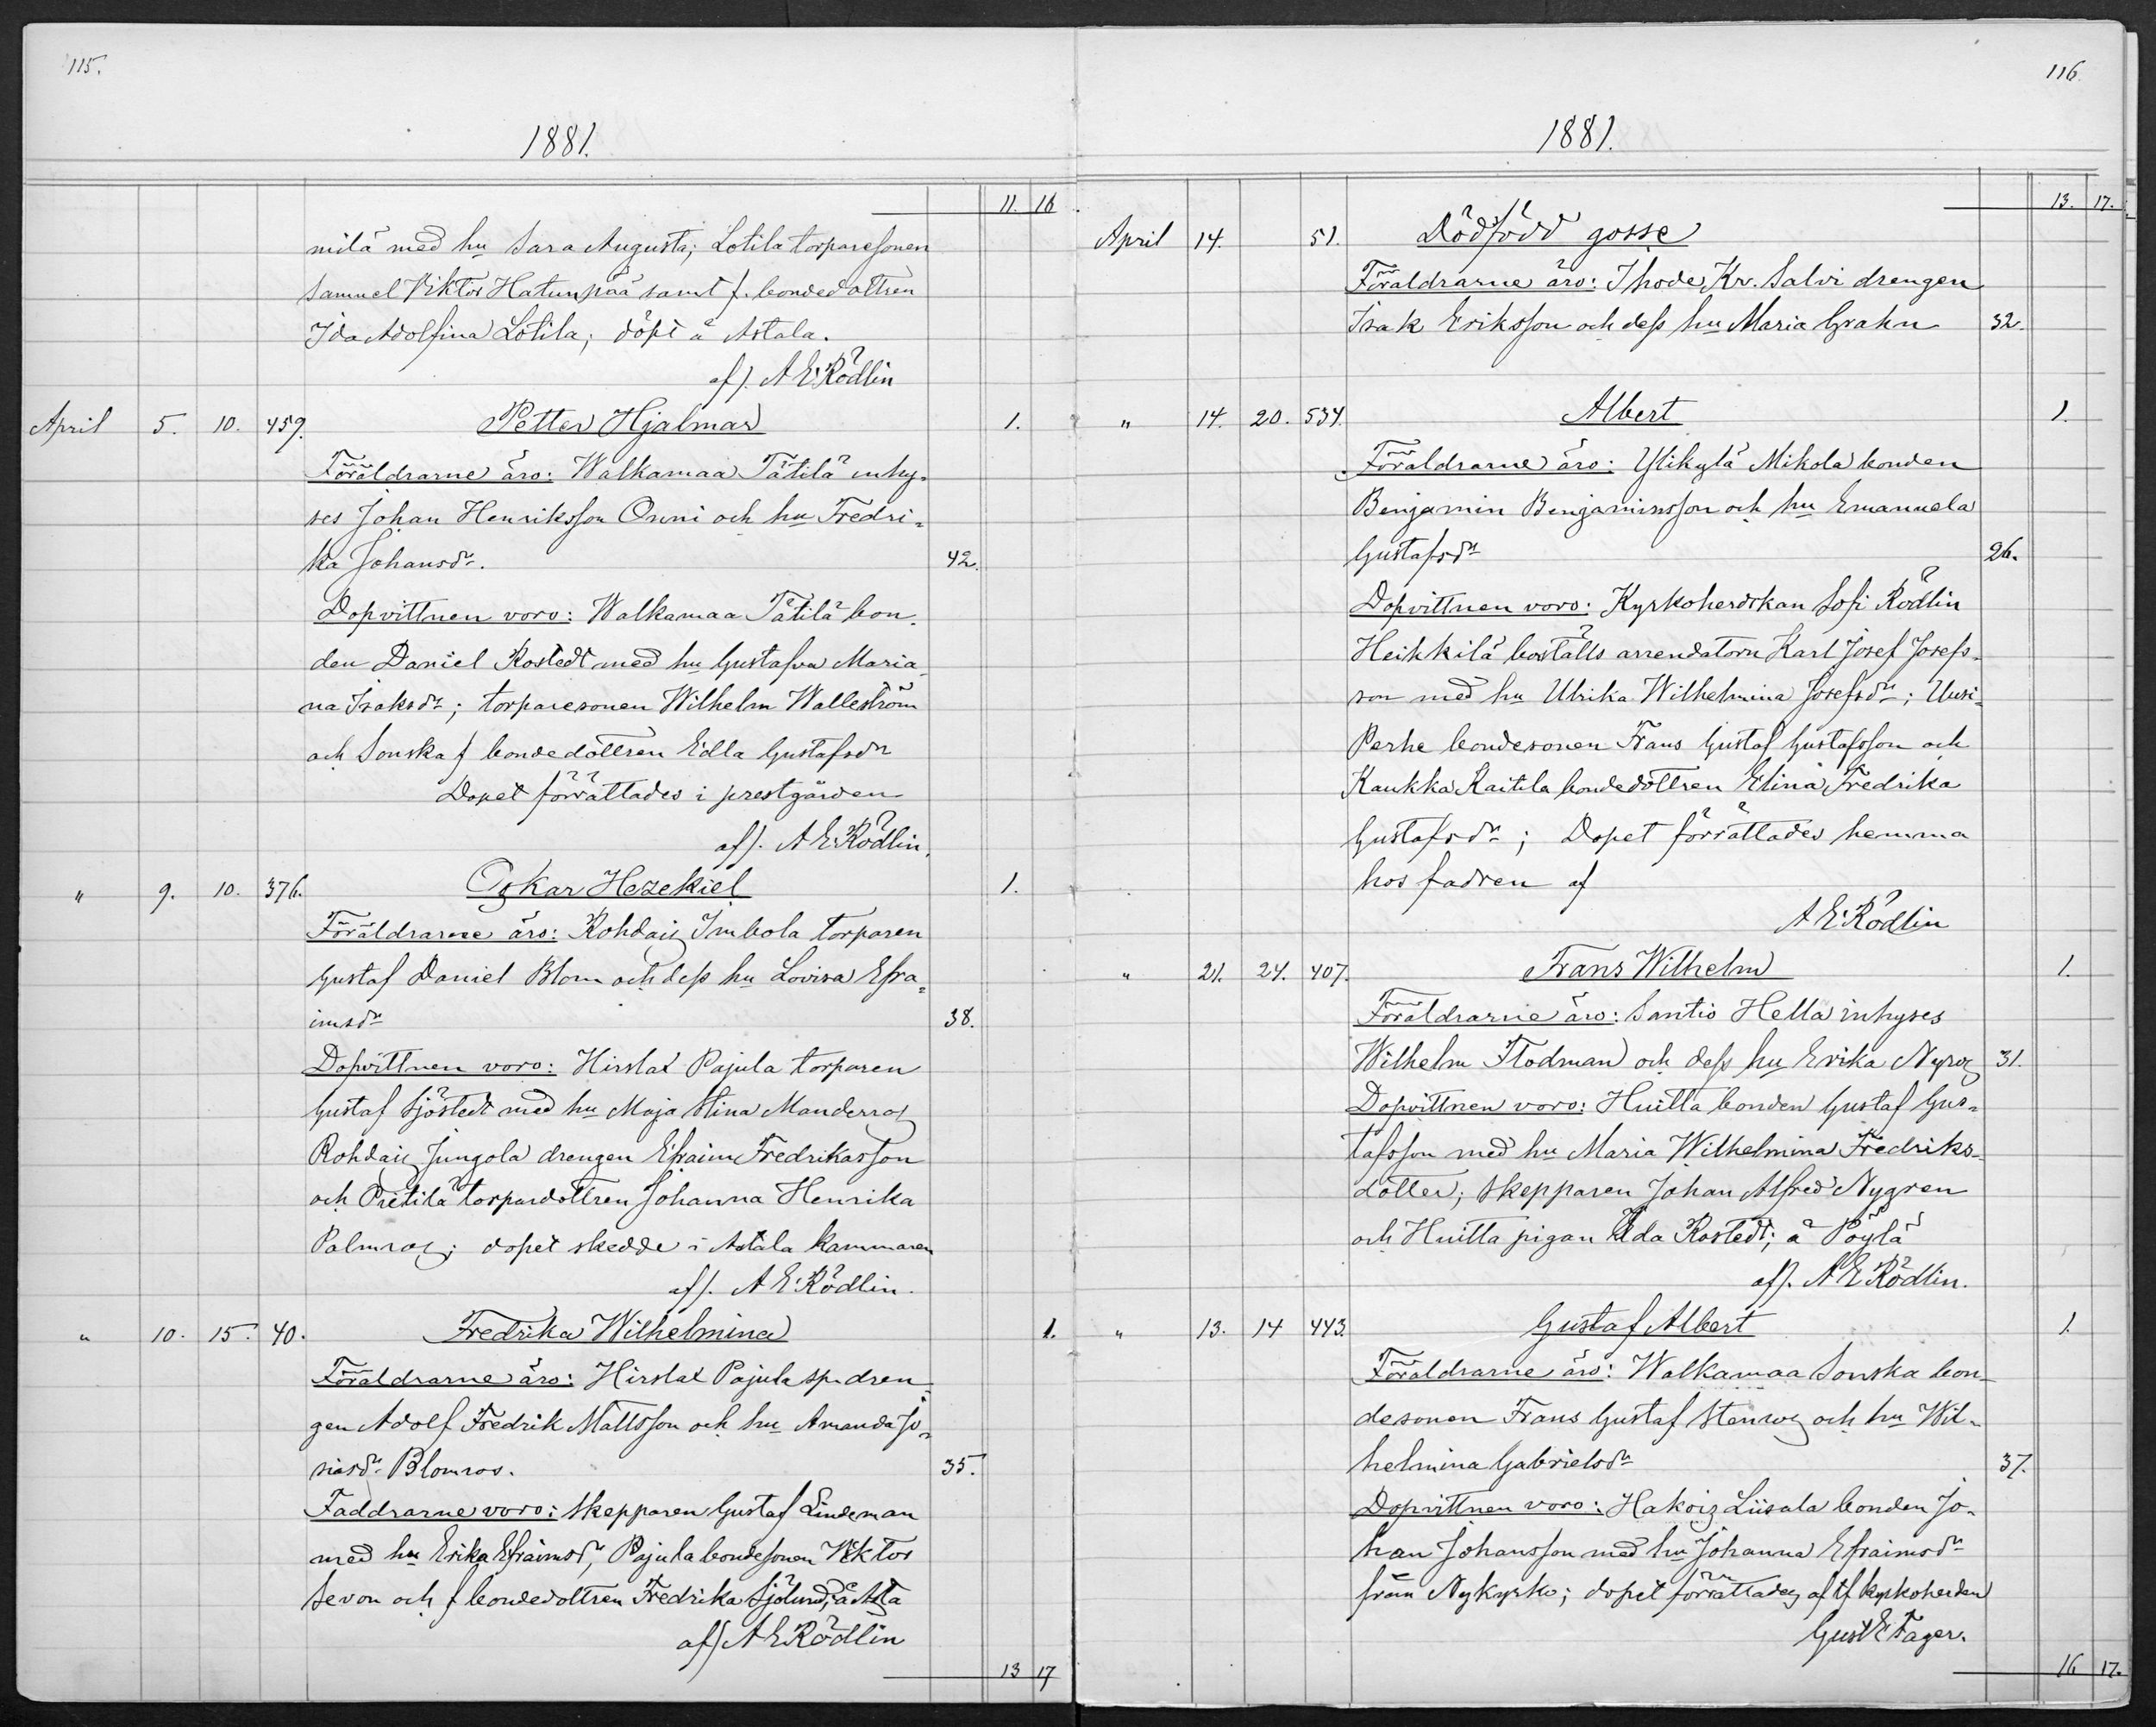 115.
1881.
11. 16
milä med hu Sara Augusta; Lotila torparesonen
Samuel Viktor Hatunpää samt f. bondedottren
Ida Adolfina Lotila; döpt å Astala.
af/. A E Rödlin
April 5. 10. 459. Petter Hjalmar 1.
Föräldrarne äro: Walkamaa Tätilä inhy-
ses Johan Henriksson Onni och hu Fredri-
ka Johansdr. 42.
Dopvittnen voro: Walkamaa Tätilä bon-
den Daniel Rostedt med hu Gustafva Maria-
na Isaksdr; torparesonen Wilhelm Walleström
och Sonska f bondedottren Edla Gustafsdr
Dopet förrättades i prestgården
af/. A E Rödlin.
" 9. 10. 376. Oskar Hezekiel 1.
Föräldrarne äro: Rohdais Imbola torparen
Gustaf Daniel Blom och dess hu Lovisa Efra-
imsdr 38.
Dopvittnen voro: Hirslax Pajula torparen
Gustaf Sjöstedt med hu Maja Stina Manderros
Rohdais Jungola drengen Efraim Fredriksson
och Prettilä torpardottren Johanna Henrika
Palmros; dopet skedde i Astala kammaren
af/. A E Rödlin.
" 10. 15. 40. Fredrika Wilhelmina 1.
Föräldrarne äro: Hirslax Pajula sp. dren-
gen Adolf Fredrik Mattsson och hu Amanda Jo-
siasdr Blomros. 35.
Faddrarne voro: Skepparen Gustaf Lindeman
med hu Erika Efraimsdr, Pajula bondesonen Viktor
Sevon och f bondedottren Fredrika Sjölund;
af/ A E Rödlin
13 17
116.
1881.
13. 17.
April 14. 51. Dödfödd gosse
Föräldrarne äro: Ihode Kr. Salvi drengen
Isak Eriksson och dess hu Maria Grahn 32.
" 14. 20. 534. Albert 1.
Föräldrarne äro: Ylikylä Mikola bonden
Benjamin Benjaminsson och hu Emanuela
Gustafsdr 26.
Dopvittnen voro: Kyrkoherdskan Sofi Rödlin
Heikkilä boställs arrendatorn Karl Josef Josefs-
son med hu Ulrika Wilhelmina Josefsdr; Uusi-
Perhe bondesonen Frans Gustaf Gustafsson och
Kaukka Kaitila bondedottren Elina Fredrika
Gustafsdr; Dopet förrättades hemma
hos fadren af
A E Rödlin
" 21. 24. 407. Frans Wilhelm 1.
Föräldrarne äro: Santio Hella inhyses
Wilhelm Flodman och dess hu Erika Nyros 31.
Dopvittnen voro: Huitta bonden Gustaf Gus-
tafsson med hu Maria Wilhelmina Fredriks-
dotter; Skepparen Johan Alfred Nygren
och Huitta pigan Ida Rostedt; å Pöylä
af/. A E Rödlin.
" 13. 14 443. Gustaf Albert 1.
Föräldrarne äro: Walkamaa Sonska bon-
desonen Frans Gustaf Stenros och hu Wil-
helmina Gabrielsdr 37.
Dopvittnen voro: Hakois Liisala bonden Jo-
han Johansson med hu Johanna Efraimsdr
från Nykyrko; dopet förrättades af tf kyrkoherden
Gust E Fager.
16 17.